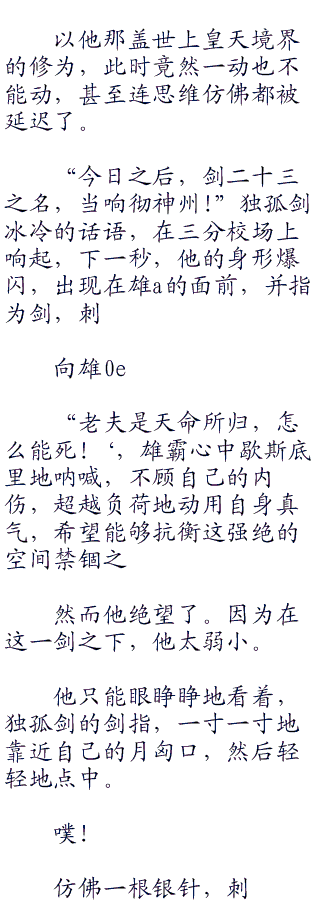 以他那盖世上皇天境界
的修为，此时竟然一动也不
能动，甚至连思维仿佛都被
延迟了。
“今日之后，剑二十三
之名，当响彻神州！”独孤剑
冰冷的话语，在三分校场上
响起，下一秒，他的身形爆
闪，出现在雄a的面前，并指
为剑，刺
向雄0e
“老夫是天命所归，怎
么能死！‘，雄霸心中歇斯底
里地呐喊，不顾自己的内
伤，超越负荷地动用自身真
气，希望能够抗衡这强绝的
空间禁锢之
然而他绝望了。因为在
这一剑之下，他太弱小。
他只能眼睁睁地看着，
独孤剑的剑指，一寸一寸地
靠近自己的月匈口，然后轻
轻地点中。
噗！
仿佛一根银针，刺